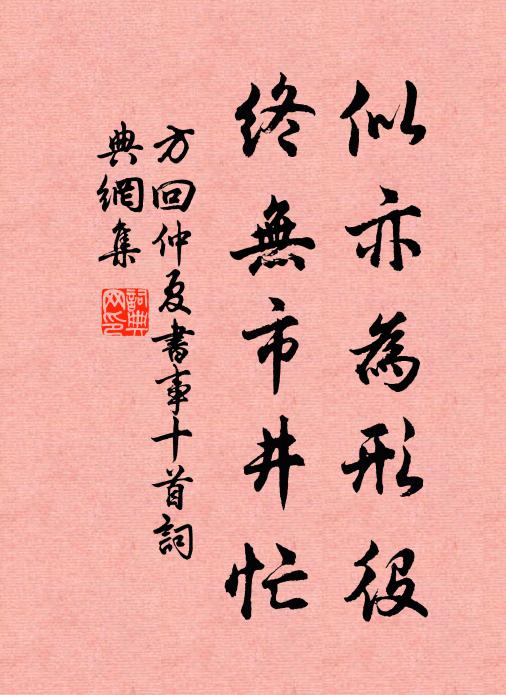 似亦為形役
終無市井忙
方回仲夏書事十首詞
典網集
詞典網印